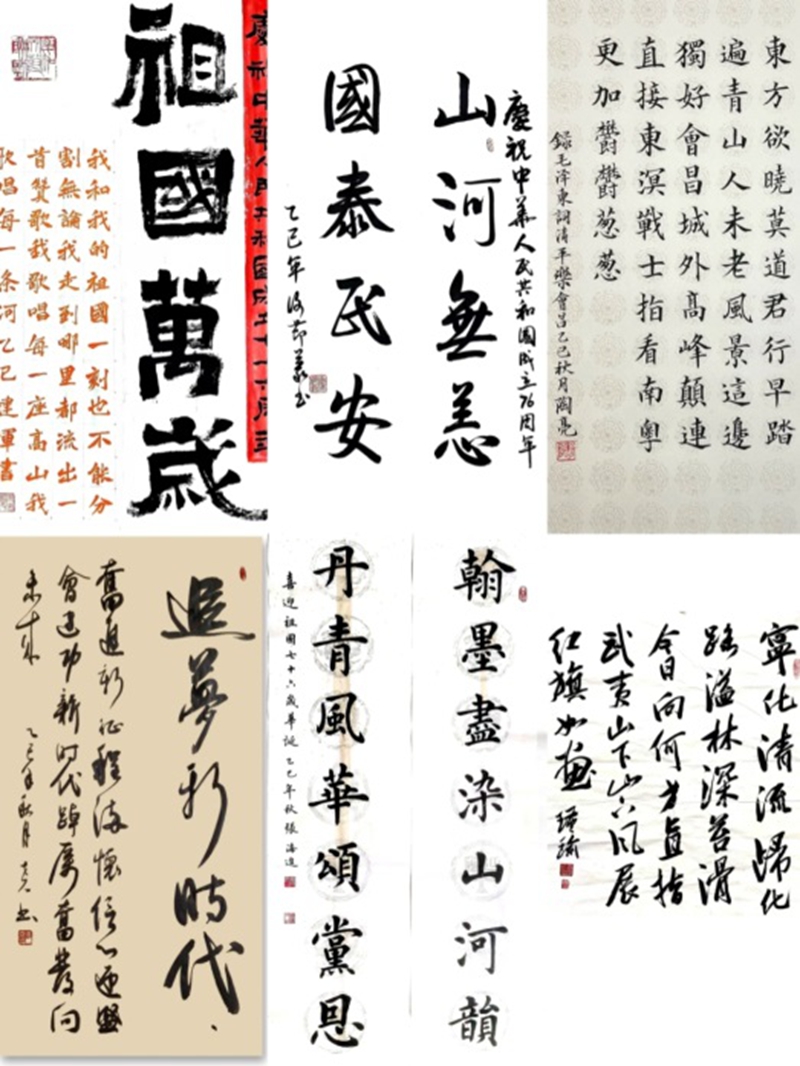 祖國萬歲
慶祝中華人民共和國成立七十六周年
我和我的祖國一刻也不能分
割無論我走到哪里都流出一
首贊歌我歌唱每一座高山我
歌唱每一條河乙巳建軍書
慶祝中華人民共和國成立76周年
山河無恙
國泰民安
乙巳年
東方欲曉莫道君行早踏
遍青山人未老風景這邊
獨好會昌城外高峰顛連
直接東溟戰士指看南粵
更加鬱鬱葱葱
錄毛澤東詞清平樂會昌乙巳秋月陶亮
追夢新時代
奮進新征程滿懷信心迎盛
會建功新時代踔厲奮發向
未來
乙巳年秋月
翰墨盡染山河韻
丹青風華頌黨恩
喜迎祖國七十六歲華誕乙巳年秋張海進
寧化清流歸化
路溢林深苔滑
今日向何方直指
武夷山下山下风展
红旗如畫 瑾瑜